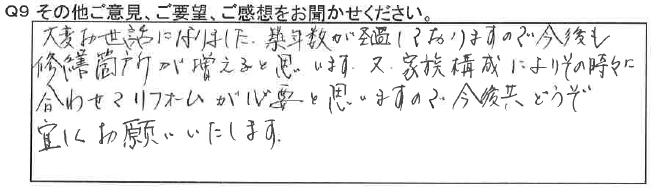 Q9 その他ご意見、ご要望、ご感想をお聞かせください。
大変お世話になりました。築年数が経過しておりますので今後も
修繕箇所が増えると思います。又、家族構成によりその時々に
合わせてリフォームが必要と思いますので今後共どうぞ
宜しくお願いいたします。